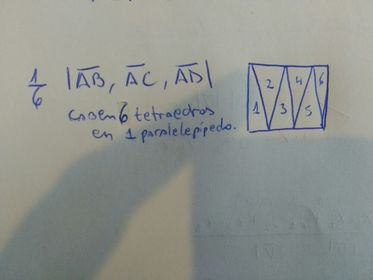 1/6 |A̅B̅, A̅C̅, A̅D̅|
caben 6 tetraedros
en 1 paralelepípedo.
1 2 3 4 5 6